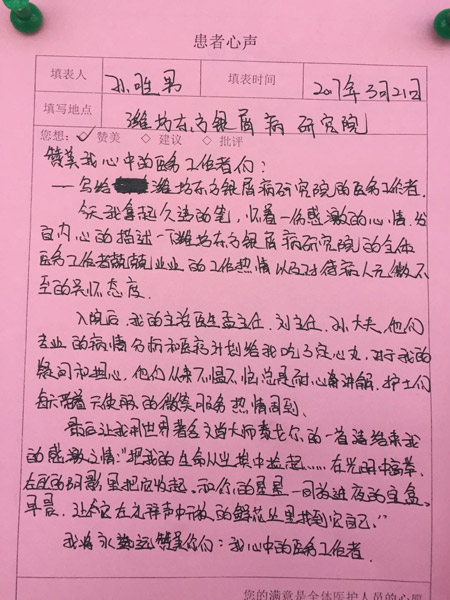 患者心声
填表人 孙胜男 填表时间 2017年3月21日
填写地点 潍坊东方银屑病研究院
您想: ✓ 赞美 ◇ 建议 ◇ 批评
赞美我心中的医务工作者们:
——写给 潍坊东方银屑病研究院的医务工作者.
今天我拿起久违的笔,怀着一份感激的心情,发
自内心的描述一下潍坊东方银屑病研究院的全体
医务工作者兢兢业业的工作热情以及对待病人无微不
至的关怀态度.
入院后,我的主治医生孟主任,刘主任,孙大夫,他们
专业的病情分析和医药计划给我吃了定心丸,对于我的
疑问和担心,他们从来不愠不恼总是耐心来讲解.护士们
每天带着天使般的微笑服务热情周到.
最后让我用世界著名文学大师泰戈尔的一首诗结束我
的感激之情:"把我的生命从尘埃中捡起……在光明中高举,
在死的阴影里把它收起.和你的星星一同放进夜的宝盒,
早晨,让它在礼拜声中开放的鲜花丛里找到它自己."
我将永远赞美你们:我心中的医务工作者.
您的满意是全体医护人员的心愿